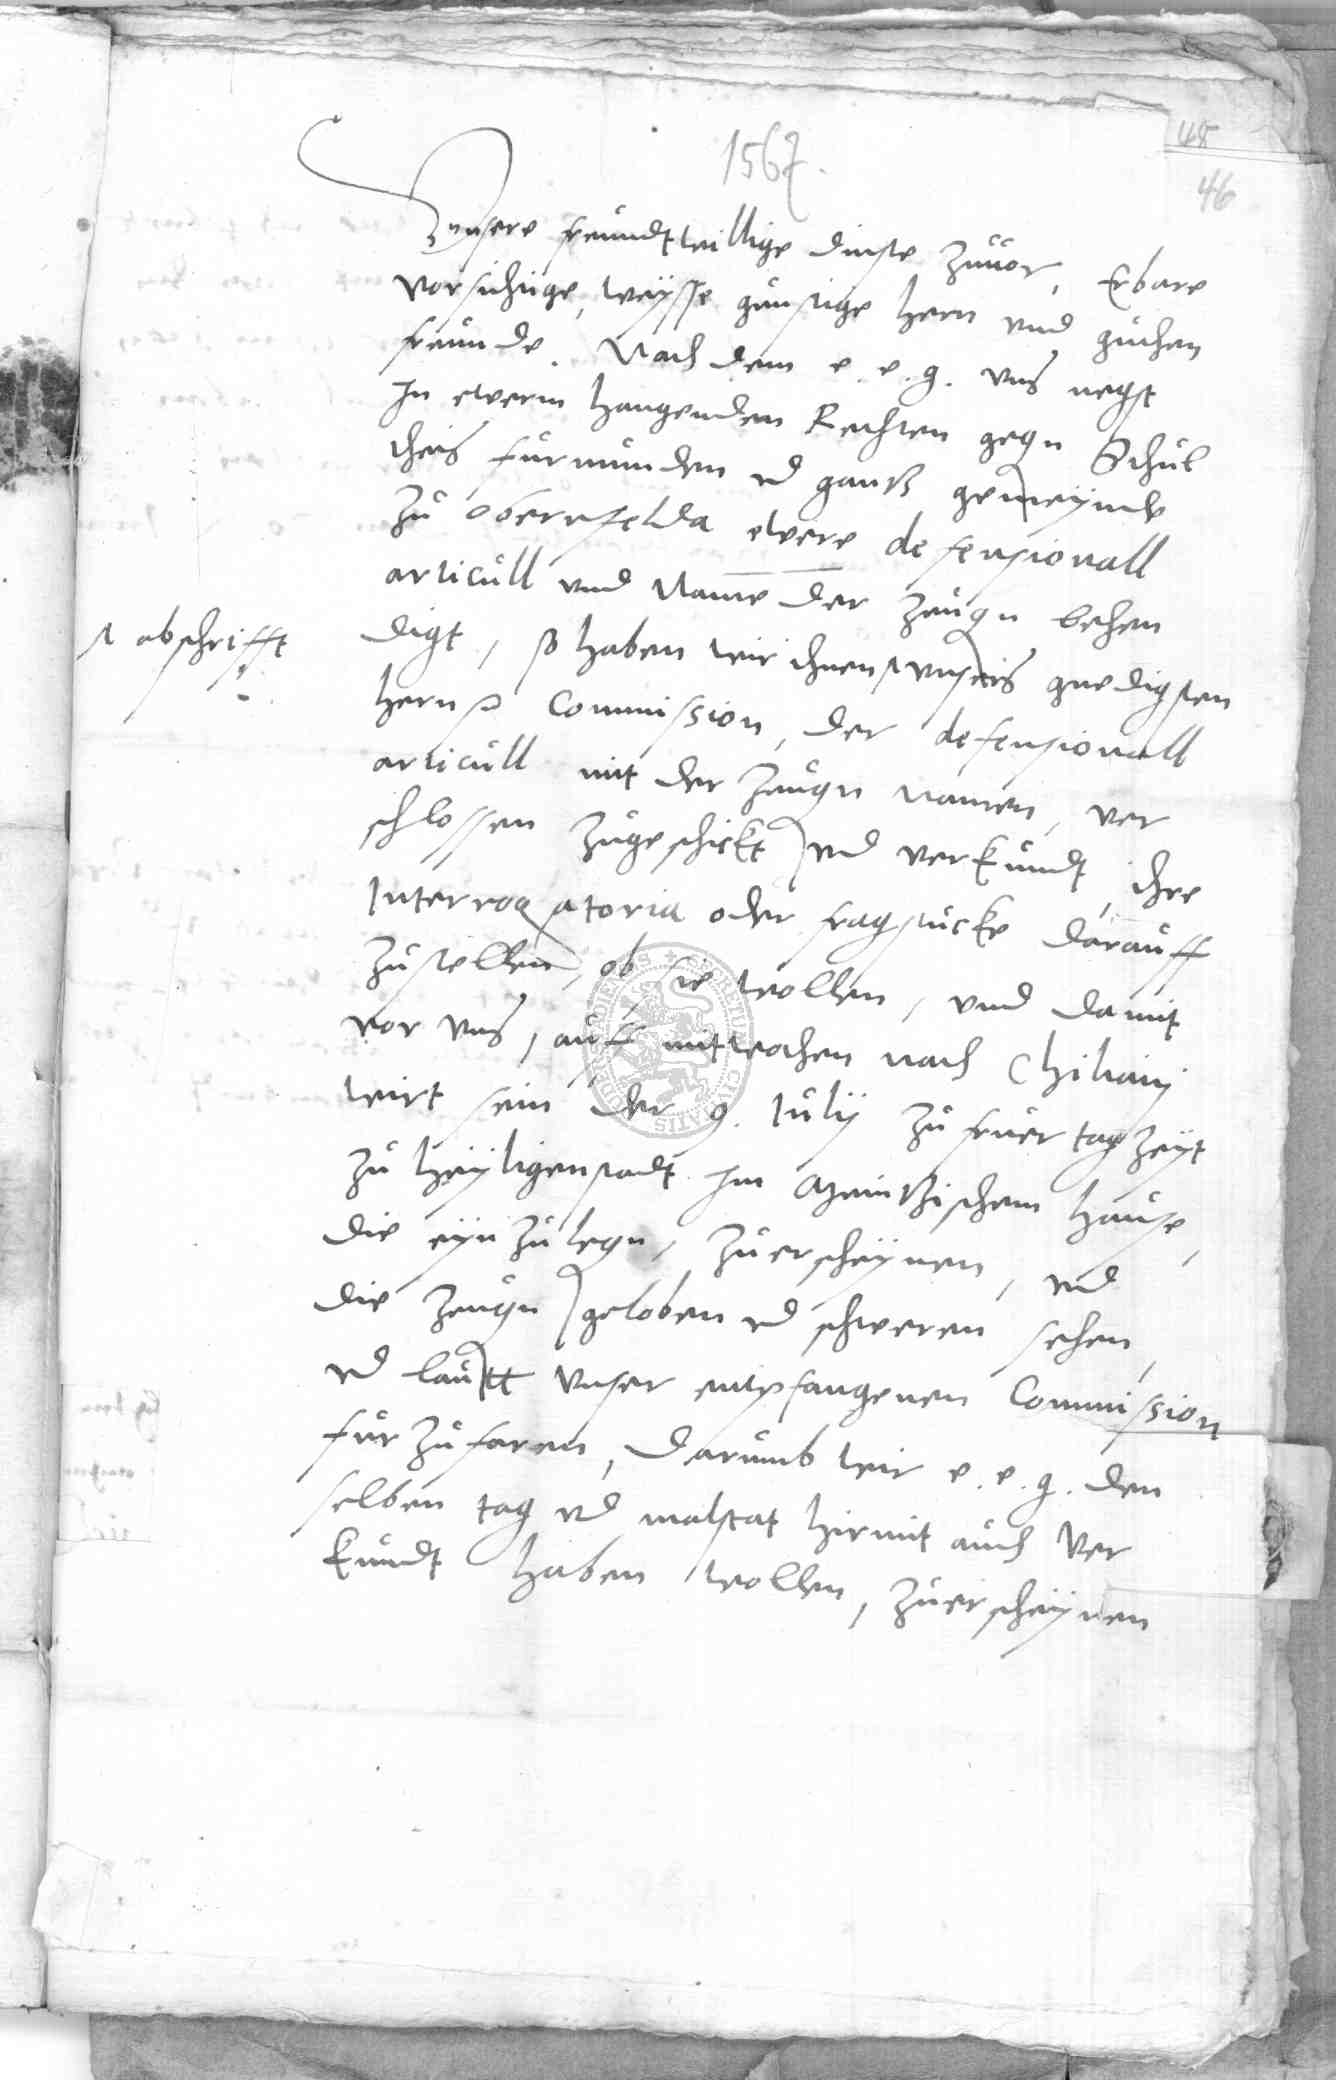 1567.
48
46
Vnsere freundtwillige dinste zuuor, Erbare
vorsichtige, weysse günstige hern vnd guthen
freunde. Nach dem e. e. g. vns negst
In ewerm hangenden Rechten gegn Schul
theis furmunden vnd gantz gemeynde
zu obernfelda ewere defensionall
articull vnd Name der zeugn behen
digt, so haben wir ihnen vnsers gnedigsten
abschrifft
hern Commission, der defensionall
articull mit der zeugn namen, ver
schlossen zugeschickt vnd verkundt, ihre
Interrogatoria oder fragstucke darauff
zustellen, ob sie wollen, vnd damit
vor vns, auff mitwochen nach Chiliany
wirt sein der 9. July zu fruer tag zeyt
zu heyligenstadt Im Meintzischem hause,
die eynzulegn, zuerscheynen, vnd
die zeugn geloben vnd schweren sehen,
vnd lautt vnser entpfangenen Commission
fur zufaren, Darumb wir e. e. g. den
selben tag vnd malstat hirmit auch Ver
kundt haben wollen, zuerscheynen